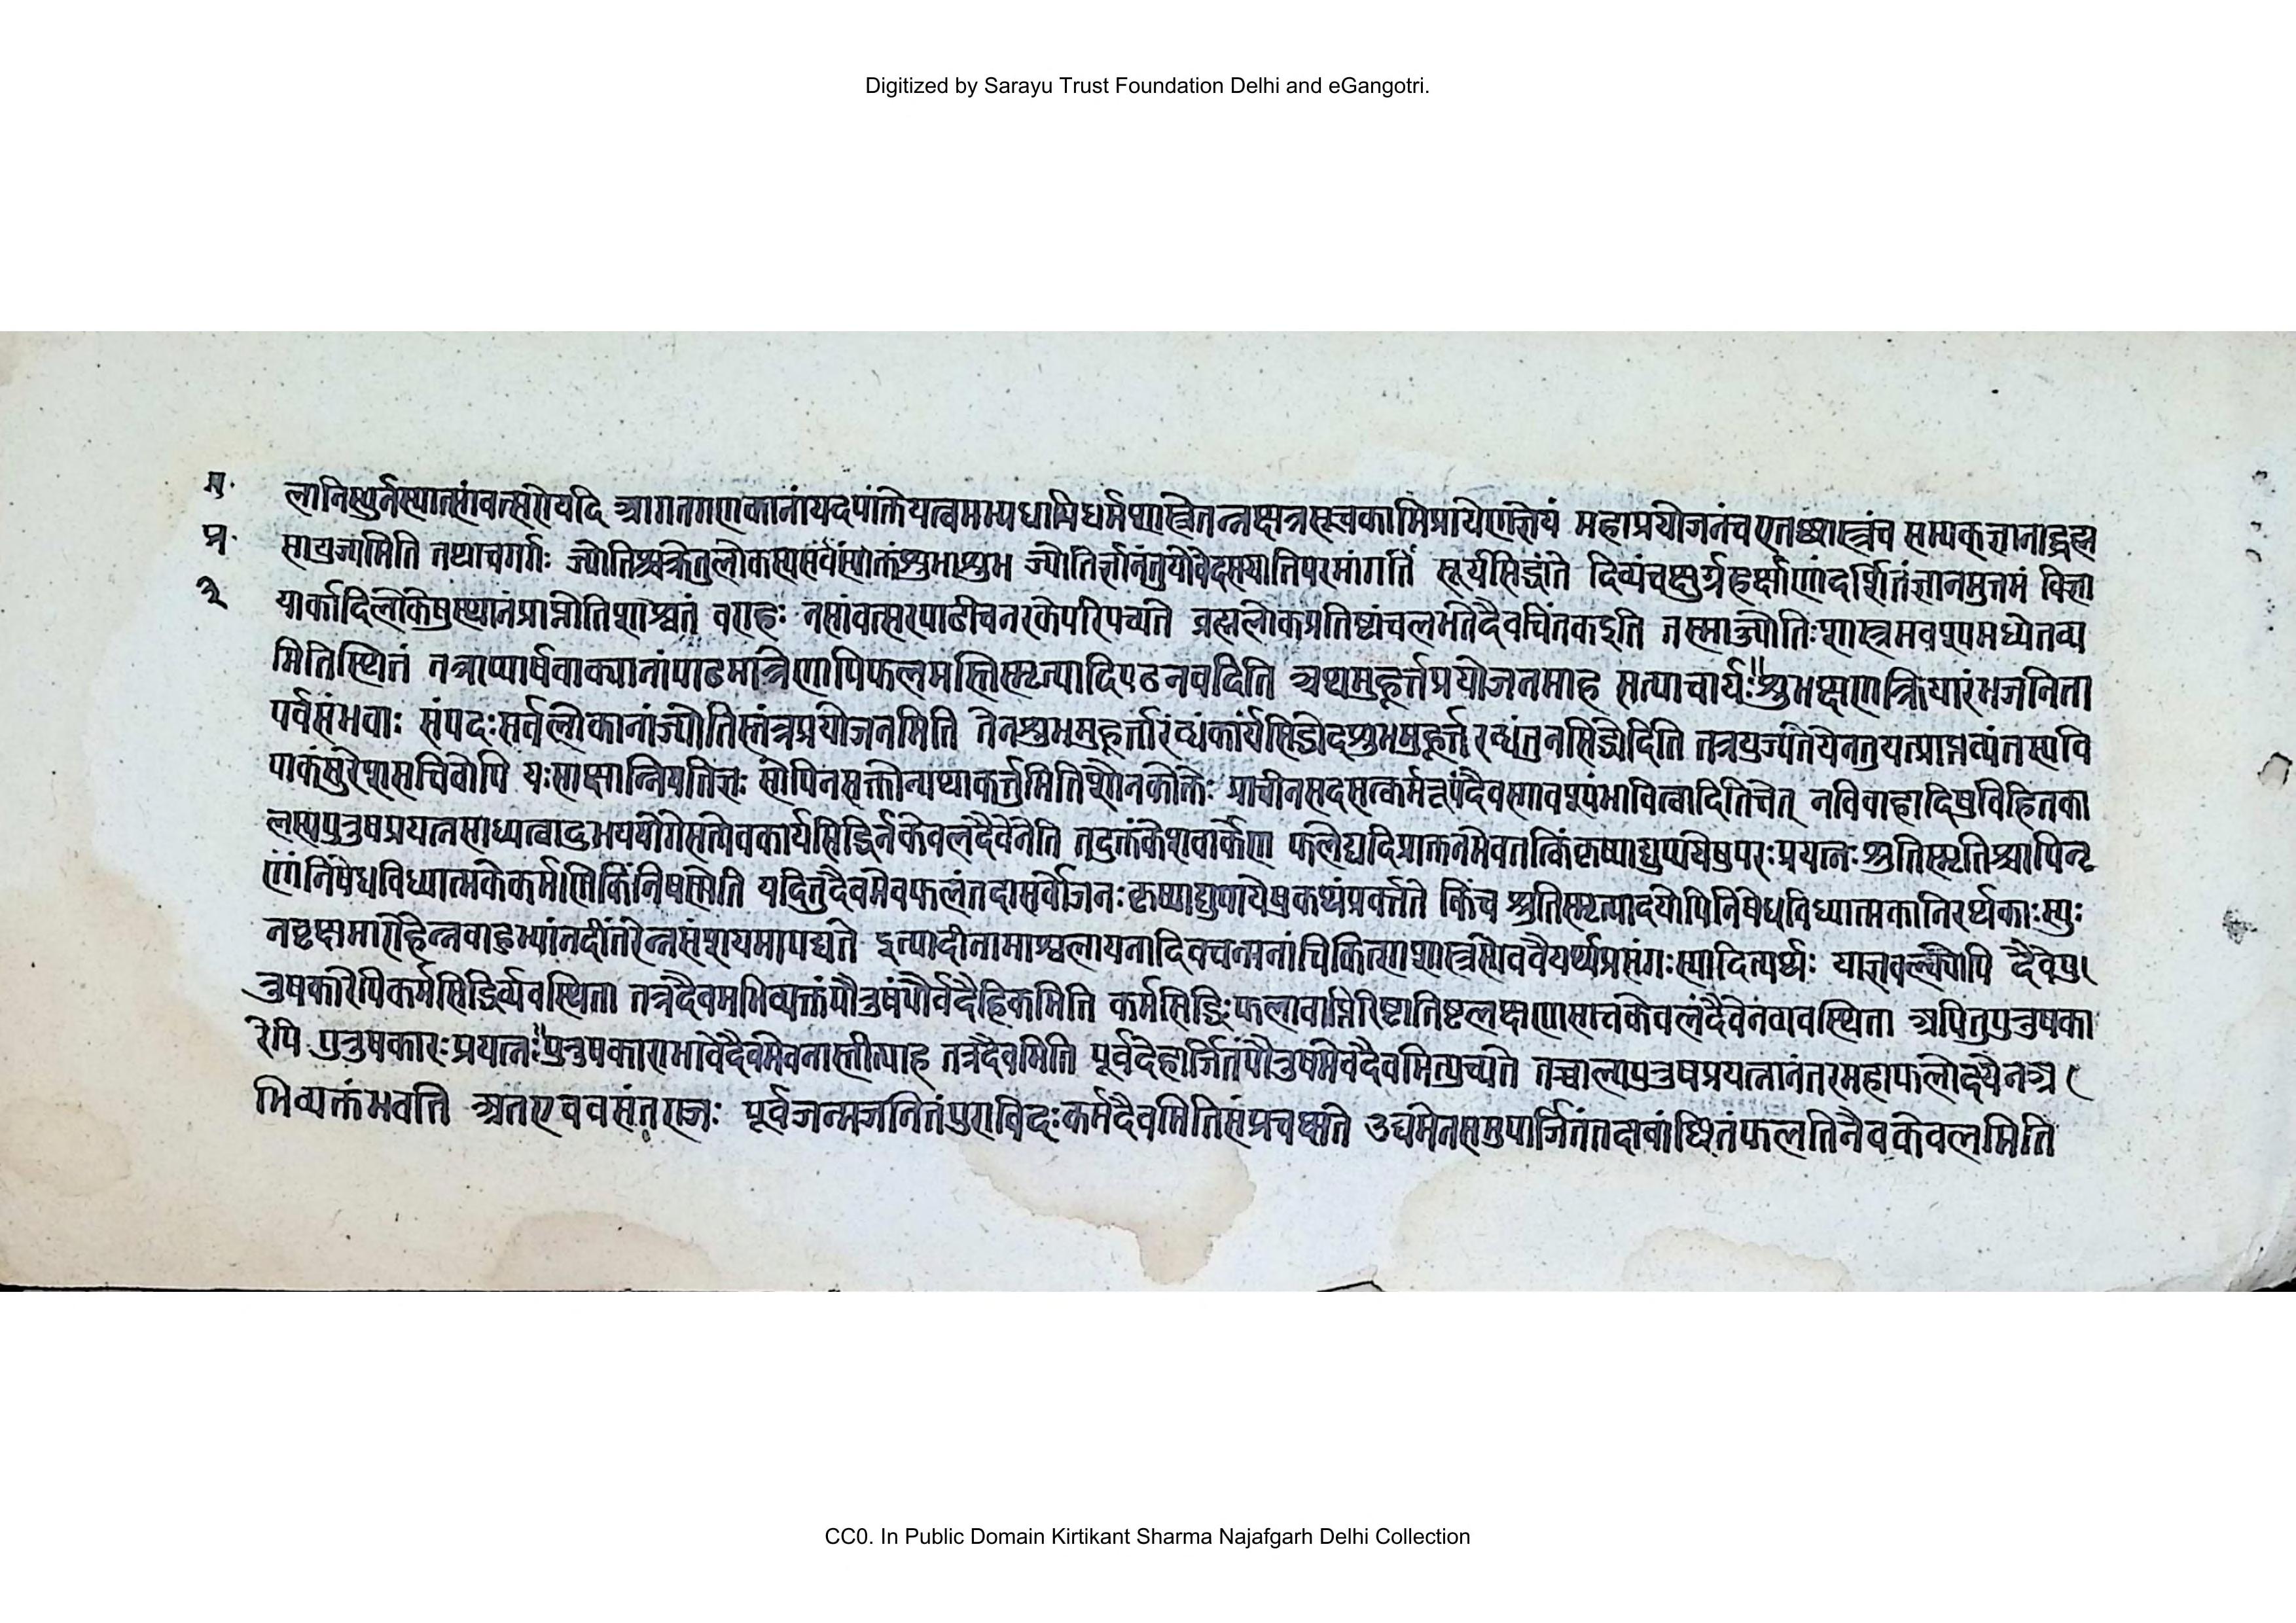 Digitized by Sarayu Trust Foundation Delhi and eGangotri.
म॰
प्र॰
२
लानिस्युर्नस्यात्सांवत्सरोयदि आगतगणकानांयदपांक्तेयत्वमभ्यधायिधर्मशास्त्रेतन्नक्षत्रसूचकाभिप्रायेणज्ञेयं महाप्रयोजनंचएतच्छास्त्रंच सम्यक्ज्ञानाद्ब्रह्म
सायुज्यमिति तथाचगर्गः ज्योतिश्चक्रेतुलोकस्यसर्वस्योक्तंशुभाशुभं ज्योतिर्ज्ञानंतुयोवेदसयातिपरमांगतिं सूर्यसिद्धांते दिव्यंचक्षुर्ग्रहर्क्षाणांदर्शितंज्ञानमुत्तमं विज्ञा
यार्कादिलोकेषुस्थानंप्राप्नोतिशाश्वतं वराहः नसांवत्सरपाठीचनरकेपरिपच्यते ब्रह्मलोकप्रतिष्टांचलभतेदैवचिंतकइति तस्माज्ज्योतिःशास्त्रमवश्यमध्येतव्य
मितिस्थितं तत्राप्यार्षवाक्यानांपाठमात्रेणापिफलमस्तिस्मृत्यादिपठनवदिति अथमुहूर्त्तप्रयोजनमाह सत्याचार्यः"शुभक्षणक्रियारंभजनिता
पर्वसंभवाः संपदःसर्वलोकानांज्योतिस्तंत्रप्रयोजनमिति तेनशुभमुहूर्त्तारब्धंकार्यंसिद्ध्येदशुभमुहूर्त्तारब्धंतुनसिद्ध्येदिति तत्रयुज्यतेयेनतुयत्प्राप्तव्यंतस्यवि
पाकंसुरेशसचिवोपि यःसाक्षान्नियतिज्ञः सोपिनसक्तोन्यथाकर्त्तुमितिशौनकोक्तेः प्राचीनसदसत्कर्मरूपंदैवस्यावश्यंभावित्वादितिचेत् नविवाहादिषुविहितका
लस्यपुरुषप्रयत्नसाध्यत्वादुभययोगेसत्येवकार्यसिद्धिर्नकेवलदैवेनेति तदुक्तंकेशवार्केण फलेद्यदिप्राक्तनमेवतत्किंकृष्याद्युपायेषुपरःप्रयत्नःश्रुतिस्मृतिश्चापिनृ
णांनिषेधविध्यात्मकेकर्मणिकिंनिषस्मेति यदितुदैवमेवफलंतदासर्वोजनःकृष्याद्युपायेषुकथंप्रवर्त्तते किंच श्रुतिस्मृत्यादयोपिनिषेधविध्यात्मकानिरर्थकाःस्युः
नवृक्षमारोहेन्नबाहुभ्यांनदींतरेन्नसंशयमापद्यते इत्यादीनामाश्वलायनादिवचनानांचिकित्साशास्त्रस्यैववैयर्थ्यप्रसंगःस्यादित्यर्थः याज्ञवल्क्योपि दैवेपु
रुषकारेपिकर्मसिद्धिर्व्यवस्थिता तत्रदैवमभिव्यक्तंपौरुषंपौर्वदैहिकमिति कर्मसिद्धिःफलावाप्तिरिष्टानिष्टलक्षणासाचकेवलंदैवेनव्यवस्थिता अपितुपुरुषका
रेपि पुरुषकारःप्रयत्नः"पुरुषकाराभावेदैवमेवनास्तीत्याह तत्रदैवमिति पूर्वदेहार्जितंपौरुषमेवदैवमित्युच्यते तच्चाल्पपुरुषप्रयत्नानंतरमहाफलोदयेनअ
भिव्यक्तंभवति अतएववसंतराजः पूर्वजन्मजनितंपुराविदःकर्मदैवमितिसंप्रचक्षते उद्यमेनसमुपार्जितंतदावांछितंफलतिनैवकेवलमिति
CC0. In Public Domain Kirtikant Sharma Najafgarh Delhi Collection